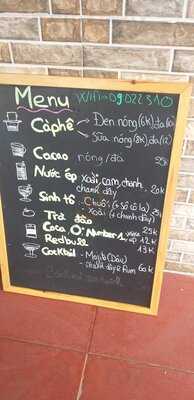 Menu WiFi: 09022310
Càphê → Đen nóng (6k) đá (10)
→ Sữa nóng (8k) đá (12)
Cacao nóng/đá 25k
Nước ép xoài, cam, chanh,
chanh dây 20k
Sinh tố - Chuối (+ sô cô la) 25k
- Xoài (+ chanh dây)
Trà đào 25k
Coca O: Number 1, 12k
Redbull 13k
Cocktail - Mojito (Dâu)
Rum 60k